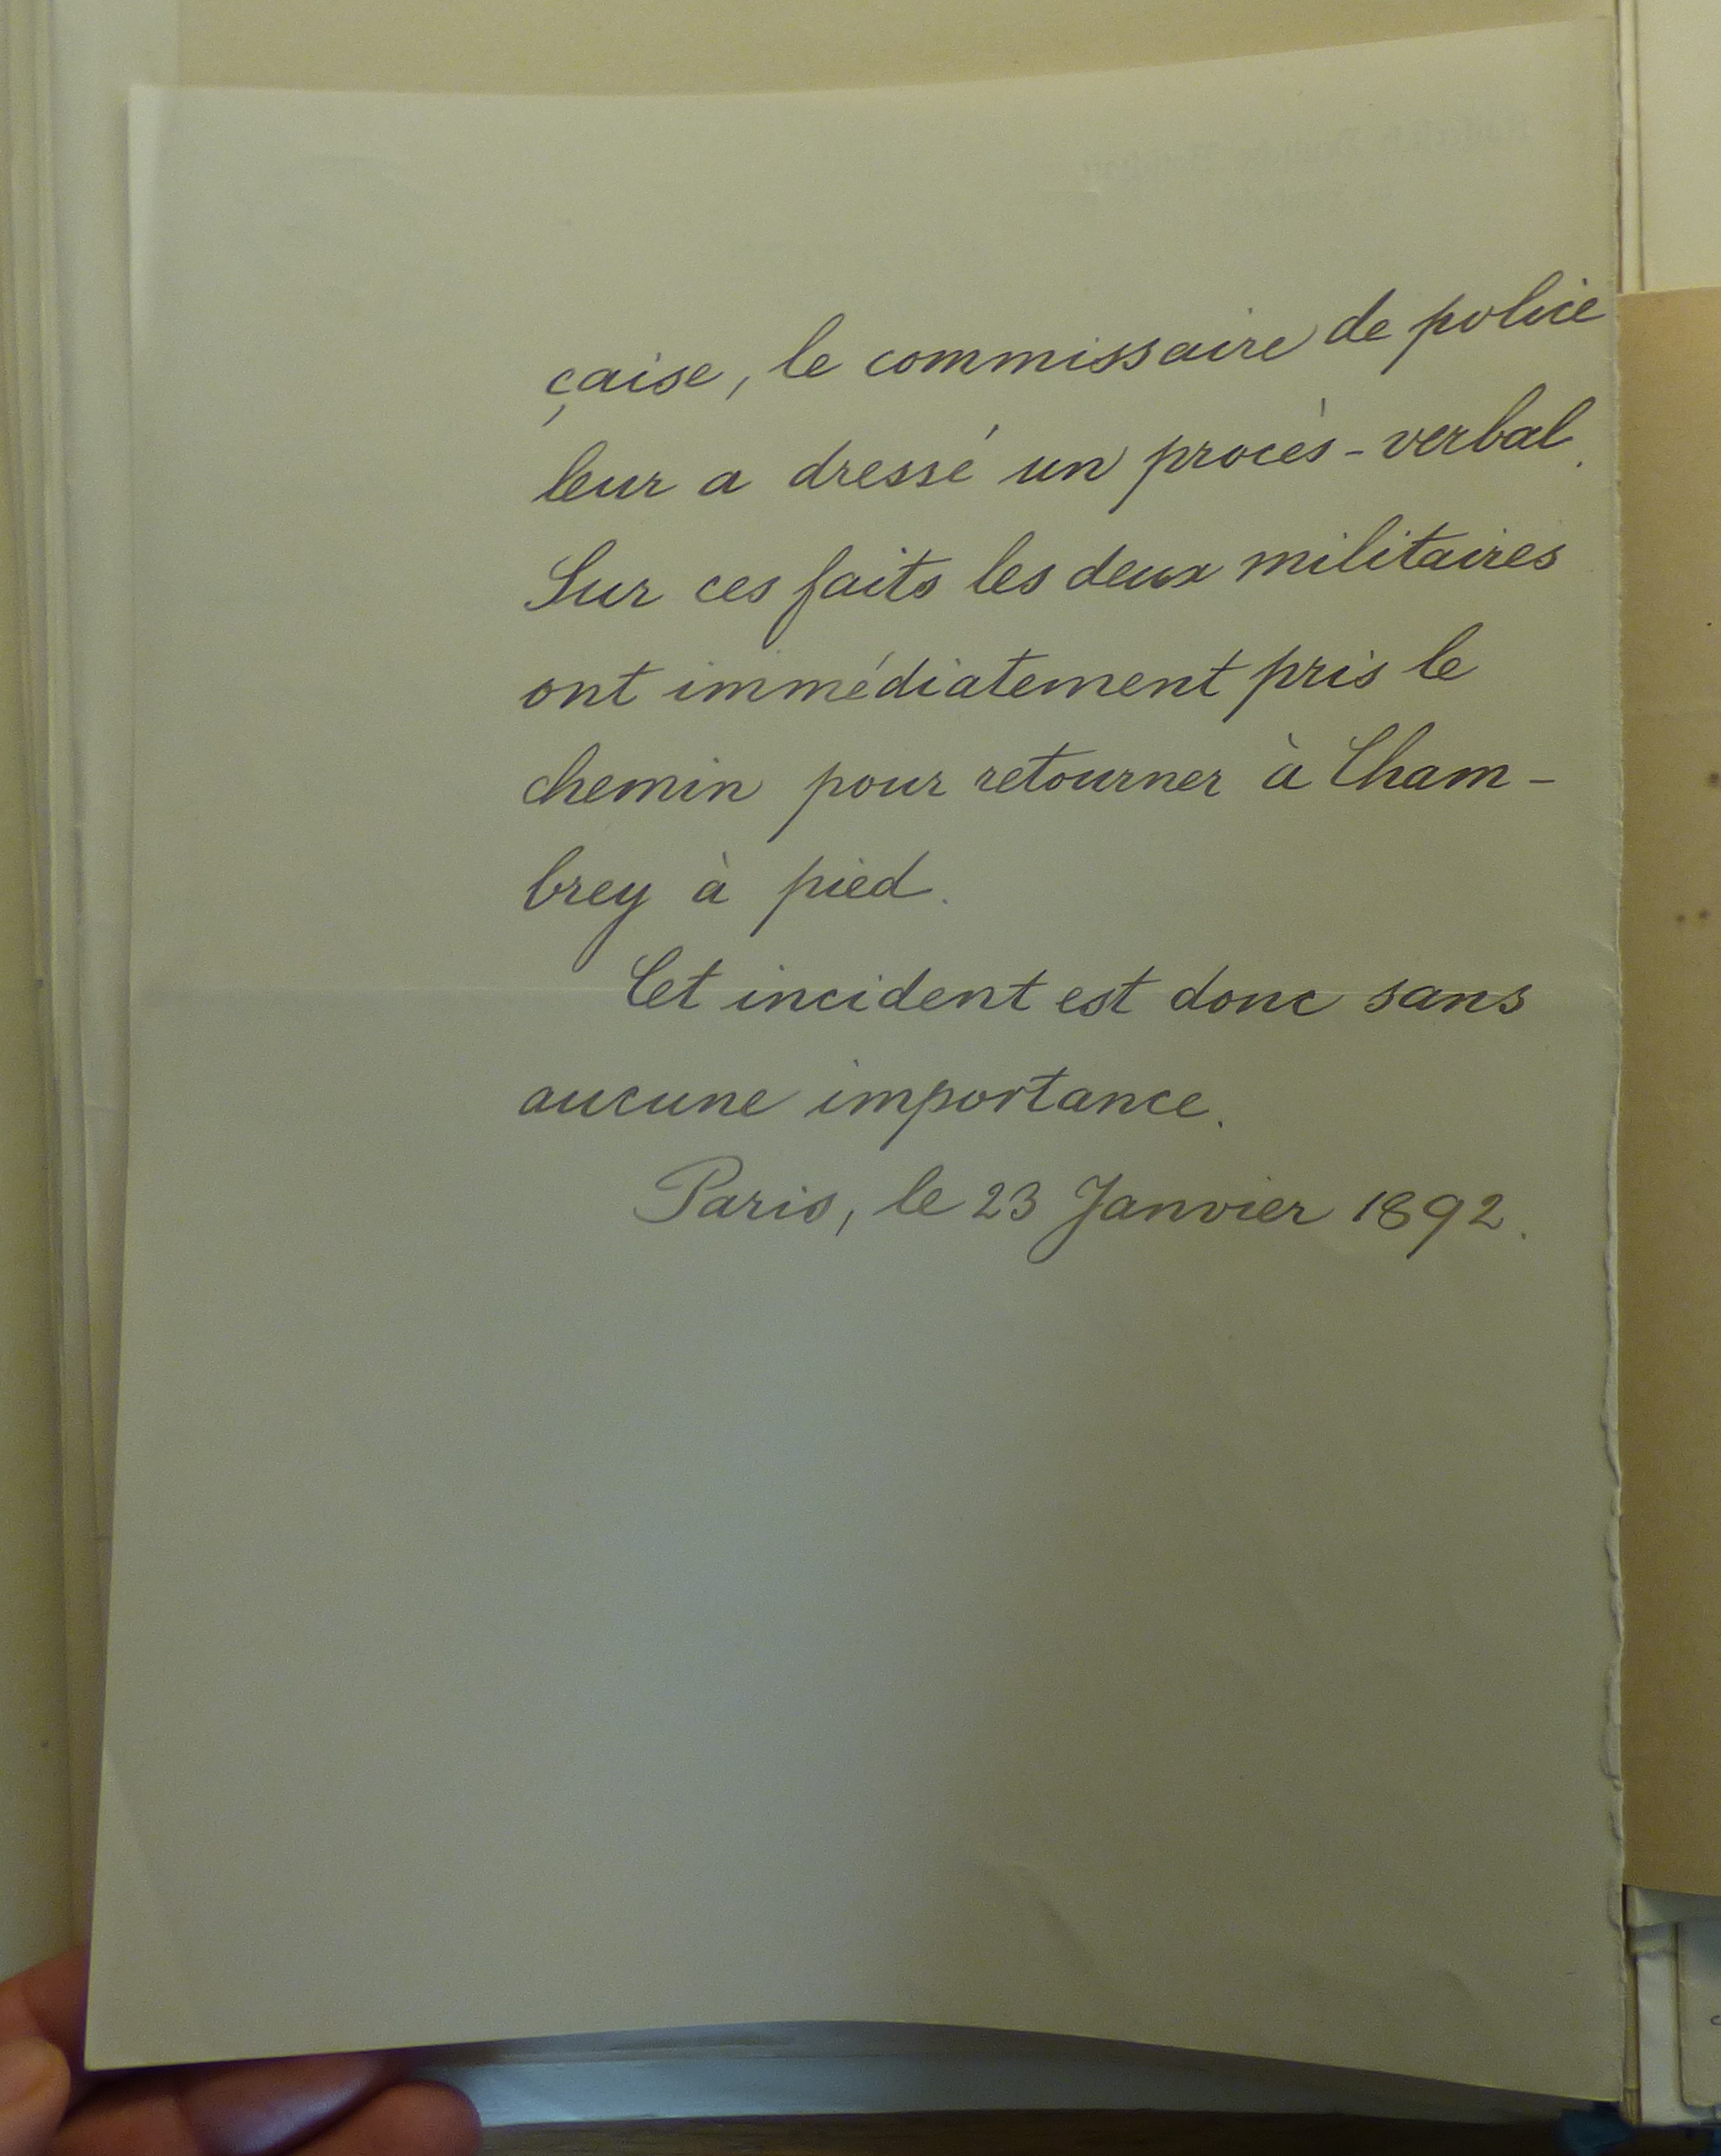 çaise, le commissaire de police
leur a dressé un procès-verbal.
Sur ces faits les deux militaires
ont immédiatement pris le
chemin pour retourner à Cham-
brey à pied.
Cet incident est donc sans
aucune importance.
Paris, le 23 Janvier 1892.